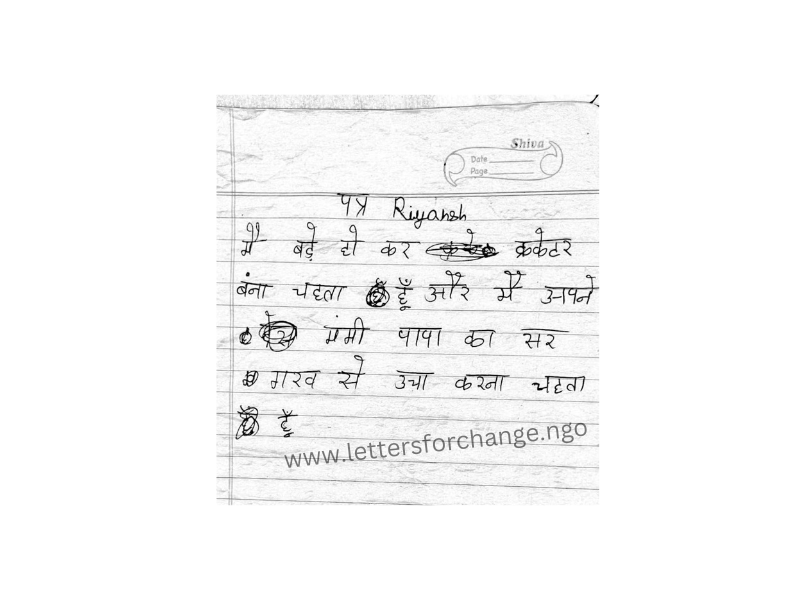 Shiva
Date
Page
पत्र Riyansh
मै बड़े हो कर क्रकेटर
बंना चहता हूँ और मै अपने
मंमी पापा का सर
गरव से उचा करना चहता
हूँ
www.lettersforchange.ngo